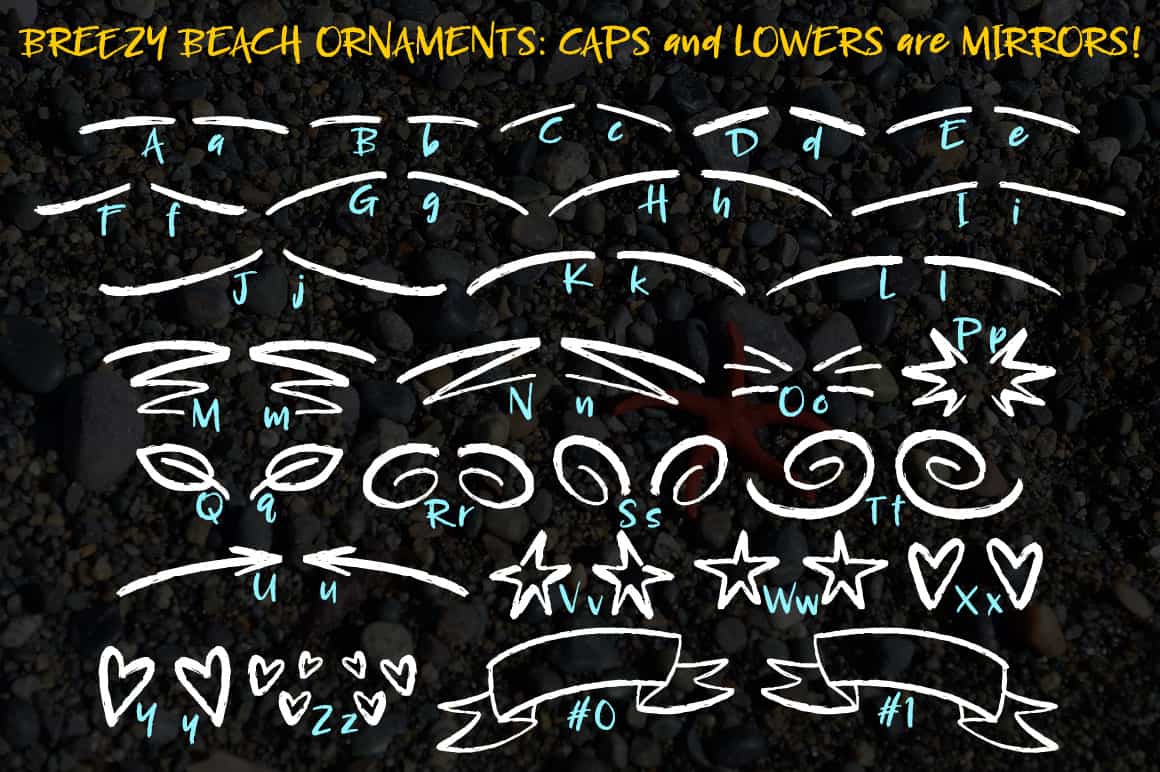 BREEZY BEACH ORNAMENTS: CAPS and LOWERS are MIRRORS!
A a B b C c D d E e
F f G g H h I i
J j K k L l
M m N n O o P p
Q q R r S s T t
U u V v W w X x
Y y Z z #0 #1